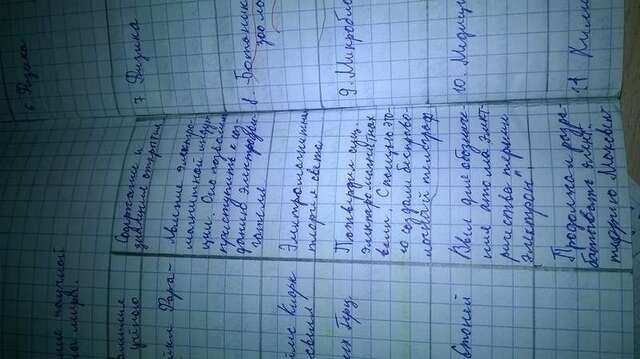 6 Физика
7 Физика
8. Ботаник
зооло
9. Микробио
10. Медици
11 Химия
Содержание и
значение открытия
явление электро-
магнитной индук-
ции. Оно позволило
приступить к соз-
данию электродви-
гателя
Электромагнитная
теория света
Подтвердил сущ.
электромагнитных
волн. С помощью это-
го создали беспрово-
лочный телеграф
Ввел для обозначе-
ния атома элект-
ричества термин
"электрон"
Продолжал разра-
батывать элект
теорию Максвел
ние научной
Фара-
Кларк
Герц
Стоней